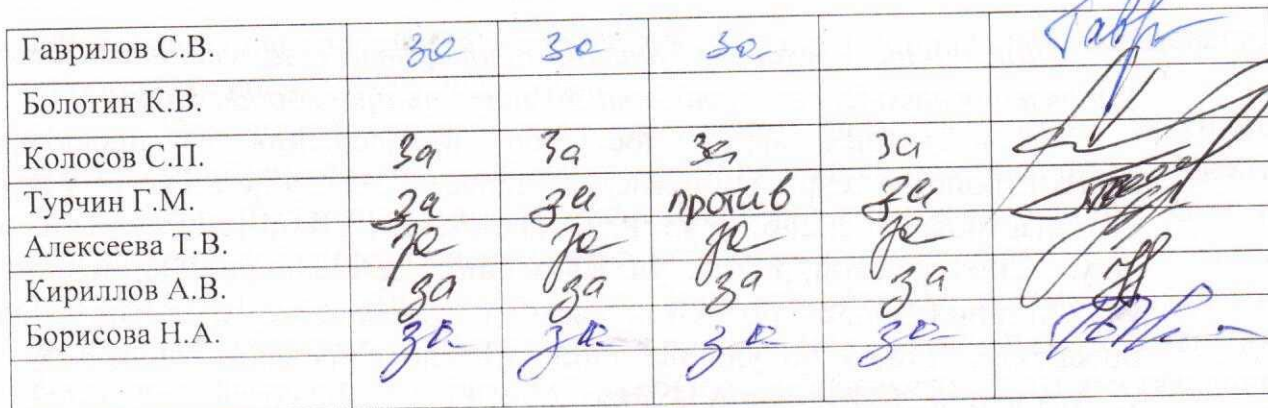 Гаврилов С.В. за за за
Болотин К.В.
Колосов С.П. за за за за
Турчин Г.М. за за против за
Алексеева Т.В. за за за за
Кириллов А.В. за за за за
Борисова Н.А. за за за за